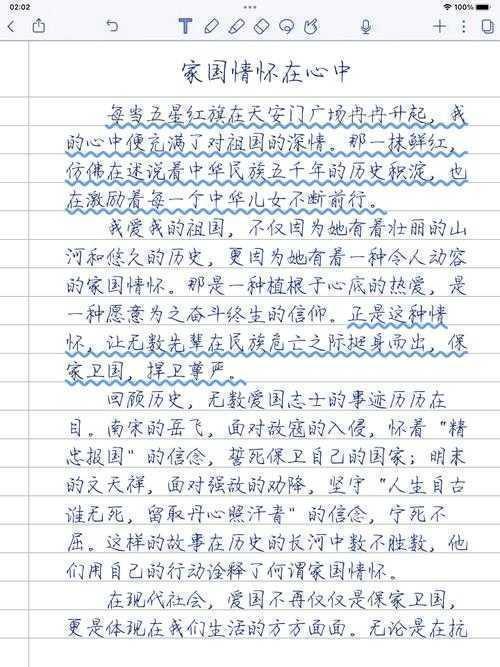 02:02
100%
T
家国情怀在心中
每当五星红旗在天安门广场冉冉升起，我
的心中便充满了对祖国的深情。那一抹鲜红，
仿佛在述说着中华民族五千年的历史积淀，也
在激励着每一个中华儿女不断前行。
我爱我的祖国，不仅因为她有着壮丽的山
河和悠久的历史，更因为她有着一种令人动容
的家国情怀。那是一种植根于心底的热爱，是
一种愿意为之奋斗终生的信仰。正是这种情
怀，让无数先辈在民族危亡之际挺身而出，保
家卫国，捍卫尊严。
回顾历史，无数爱国志士的事迹历历在
目。南宋的岳飞，面对敌寇的入侵，怀着"精
忠报国"的信念，誓死保卫自己的国家；明末
的文天祥，面对强敌的劝降，坚守"人生自古
谁无死，留取丹心照汗青"的信念，宁死不
屈。这样的故事在历史的长河中数不胜数，他
们用自己的行动诠释了何谓家国情怀。
在现代社会，爱国不再仅仅是保家卫国，
更是体现在我们生活的方方面面。无论是在抗